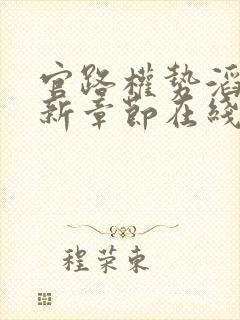 官路權勢滔
新章節在綫
程荣東